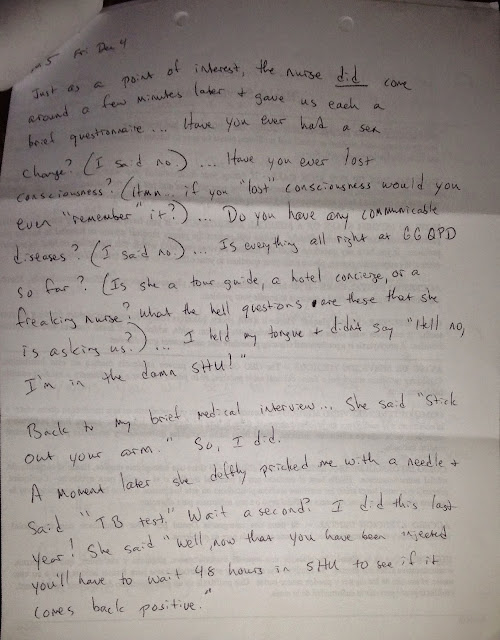 Fri Dec 4
Just as a point of interest, the nurse did come
around a few minutes later + gave us each a
brief questionnaire... Have you ever had a sex
change? (I said no)... Have you ever lost
consciousness? (Hmn.. if you "lost" consciousness would you
even "remember" it?)... Do you have any communicable
diseases? (I said no)... Is everything all right at GGQPD
so far? (Is she a tour guide, a hotel concierge, or a
freaking nurse? What the hell questions are these that she
is asking us?)... I held my tongue + didn't say "Hell no,
I'm in the damn SHU!"
Back to my brief medical interview... She said "Stick
out your arm." So, I did.
A moment later she deftly pricked me with a needle +
said "TB test." Wait a second? I did this last
year! She said "Well, now that you have been injected
you'll have to wait 48 hours in SHU to see if it
comes back positive."